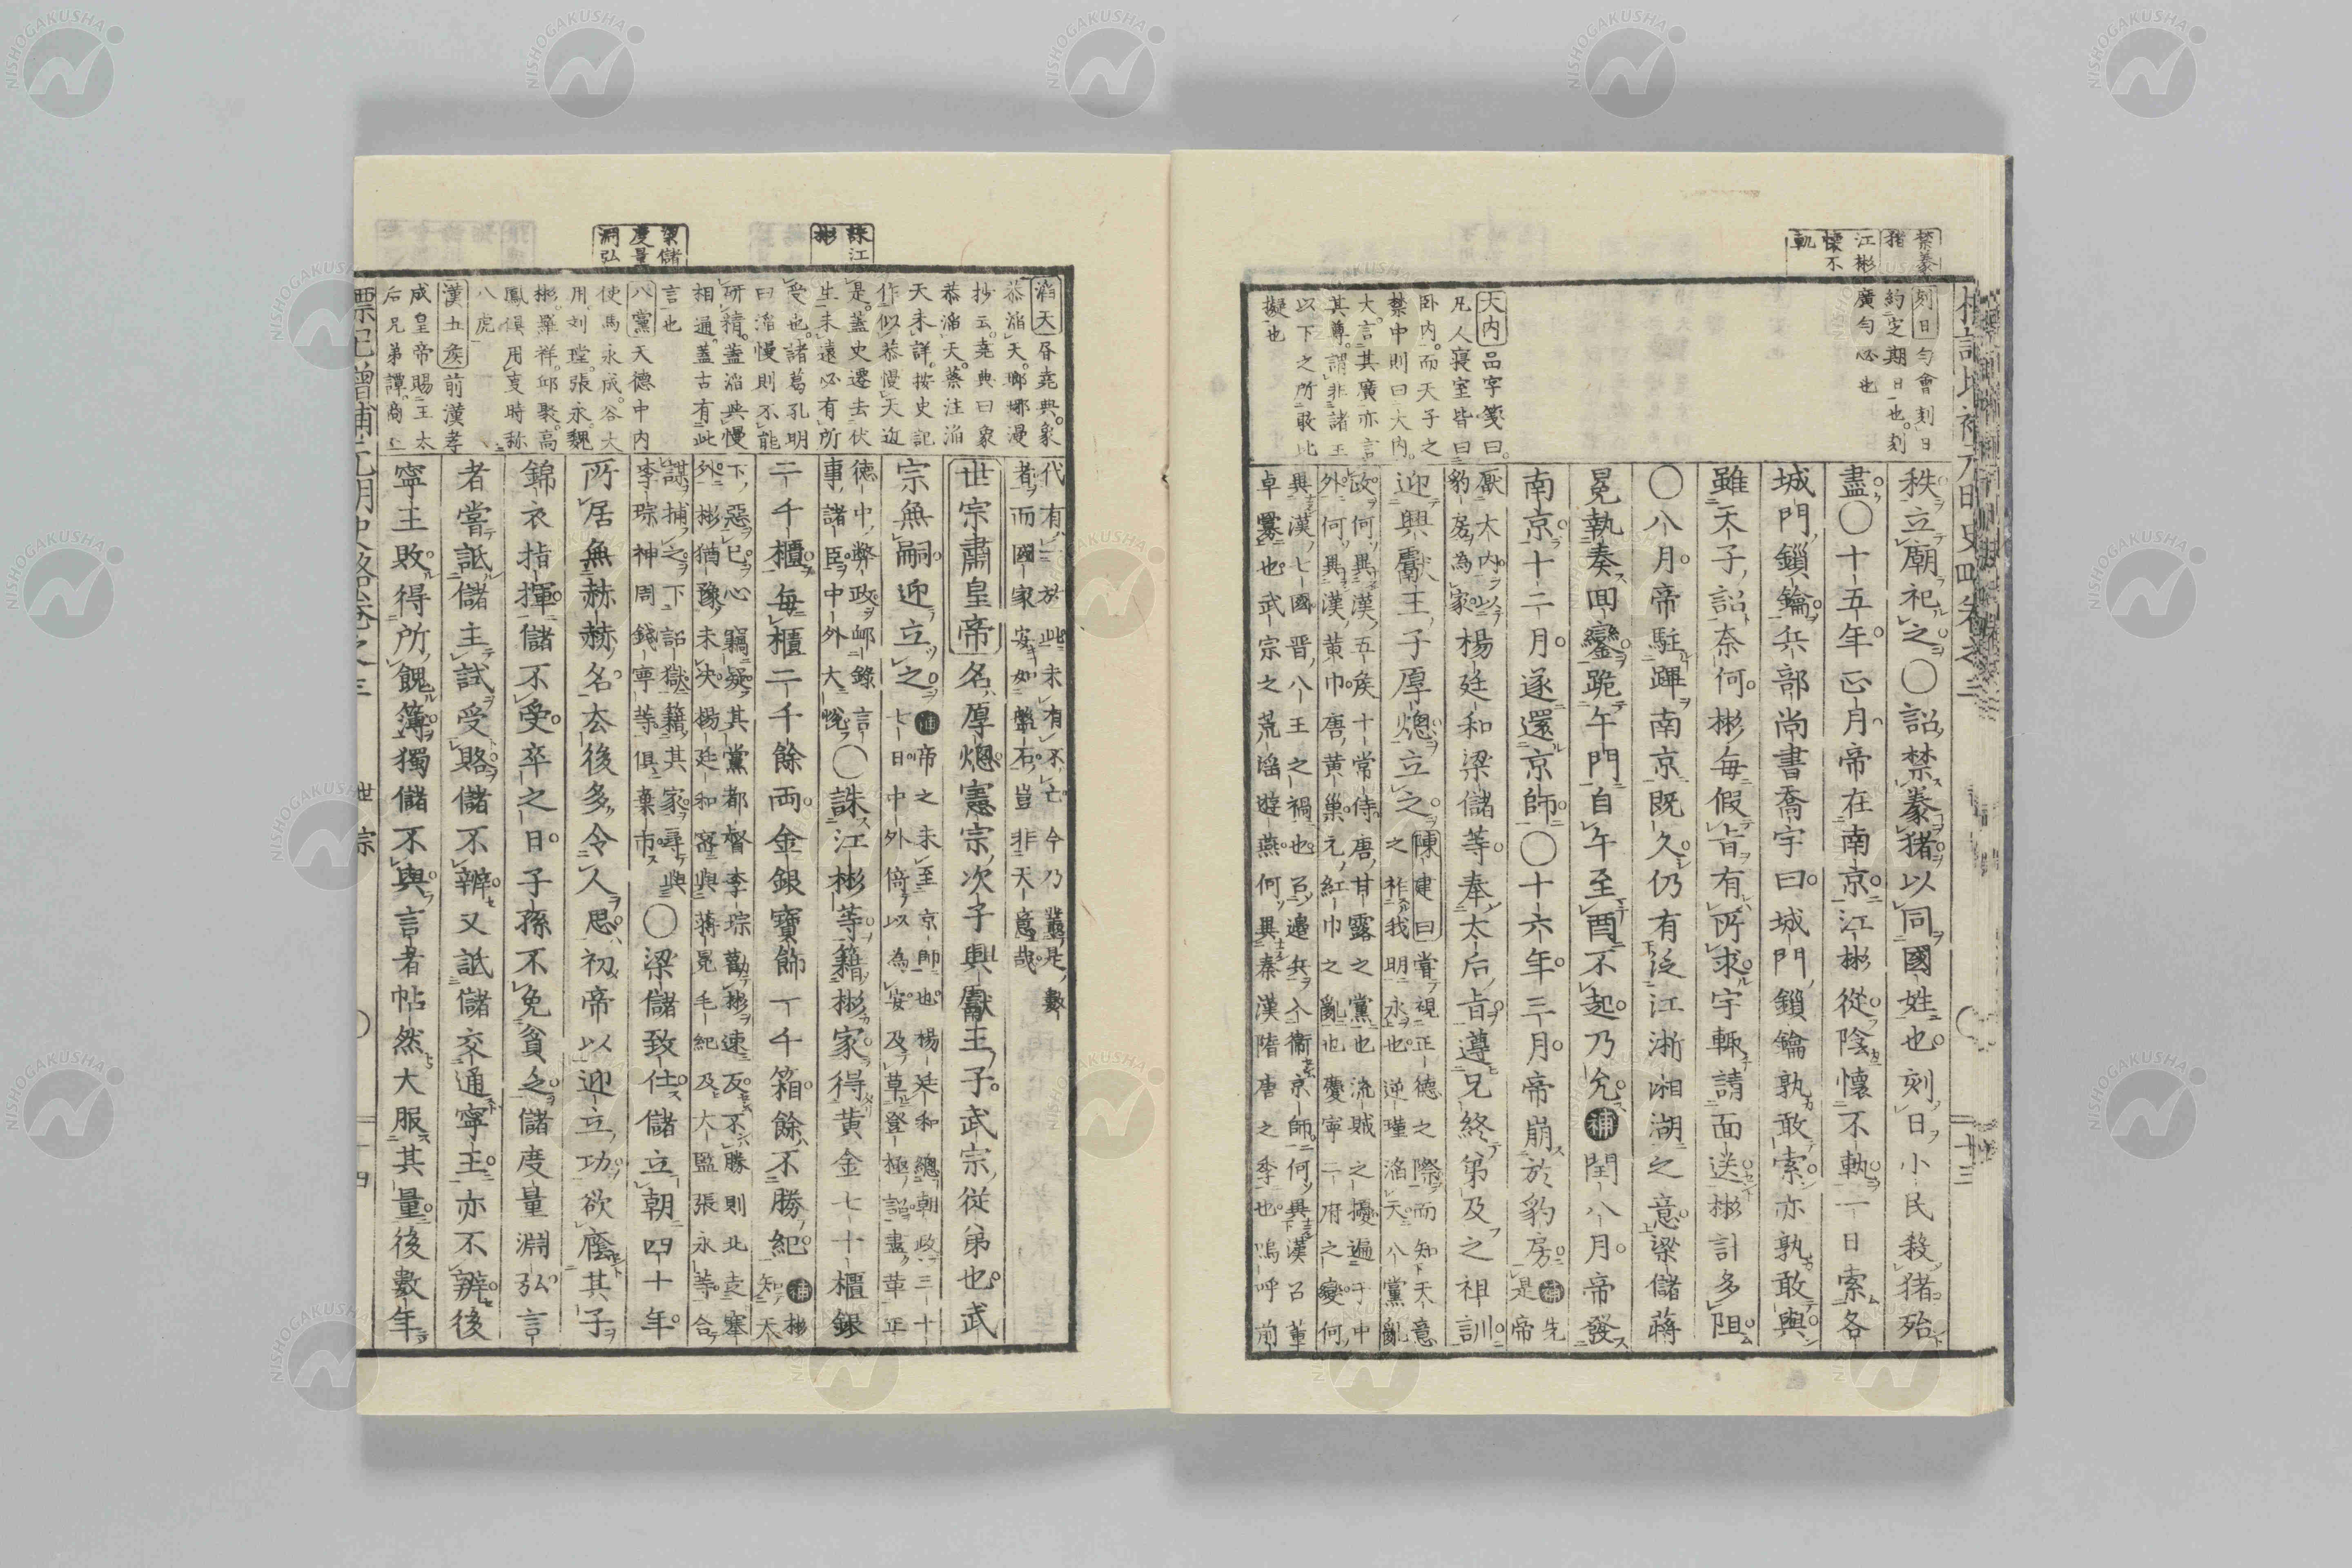 禁豢
猪
江彬
懐不
軌
刻日 匀會刻日
約定期日也。刻
廣匀必也
大内 品字箋曰。
凡人寝室皆曰
卧内。而天子之
禁中則曰大内。
大言其廣亦言
其尊。謂非諸王
以下之所敢比
擬也
秩立廟祀之〇詔禁豢猪以同國姓也刻日小民殺猪殆
盡〇十五年正月帝在南京江彬從陰懷不軌一日索各
城門鎖鑰兵部尚書喬宇曰城門鎖鑰孰敢索亦孰敢與
雖天子詔奈何彬毎假旨有所求宇輙請面送彬計多阻
〇八月帝駐蹕南京既久仍有泛江浙湘湖之意梁儲蔣
冕執奏回鑾跪午門自午至酉不起乃允補閏八月帝發
南京十二月遂還京師〇十六年三月帝崩於豹房補先
是帝
厭大内以
豹房為家楊廷和梁儲等奉太后旨遵兄終弟及之祖訓
迎興獻王子厚熜立之陳建曰嘗視正德之際而知天意
之祚我明永也逆瑾滔天八黨亂
政何異漢五矦十常侍唐甘露之黨也流賊之擾遍于中
外何異漢黄巾唐黄巢元紅巾之亂也慶寧二府之變何
異漢七國晋八王之禍也召邊兵入衞京師何異漢召董
卓㬥也武宗之荒滛遊燕何異秦漢隋唐之季也嗚呼前
標記增補元明史略卷之三
世宗
二十四
誅江
彬
梁儲
度量
淵弘
滔天 㫺堯典。象
恭滔天。瑯琊漫
抄云。堯典曰象
恭滔天。蔡注滔
天未詳。按史記
作似恭慢天近
是。蓋史遷去伏
生未遠必有所
受也。諸葛孔明
曰滔慢則不能
研精。蓋滔與慢
相通。蓋古有此
言也
八黨 天德中内
使馬永成。谷大
用。刘瑾。張永。魏
彬。羅祥。邱聚。高
鳳俱用亊時称
八虎
漢五矦 前漢孝
成皇帝賜王太
后兄弟譚。商。立
代有一於此未有不亡今乃叢是數
者而國家安如盤石豈非天意哉
世宗肅皇帝名厚熜憲宗次子興獻王子武宗從弟也武
宗無嗣迎立之補帝之未至京師也楊廷和總朝政三十
七日中外倚以為安及草登極詔盡革正
德中弊政邮錄言
事諸臣中外大悅〇誅江彬等籍彬家得黄金七十櫃銀
二千櫃毎櫃二千餘両金銀寳飾一千箱餘不勝紀補彬
知天
下惡已心竊疑其黨都督李琮勸彬速反不勝則北走塞
外彬猶豫未决楊廷和密與蒋冕毛紀及大監張永等合
謀捕之下詔獄籍其家尋與
李琮神周錢寧等俱棄市〇梁儲致仕儲立朝四十年
所居無赫赫名去後多令人思初帝以迎立功欲廕其子
錦衣指揮儲不受卒之日子孫不免貧乏儲度量淵弘言
者嘗詆儲主試受賂儲不辨又詆儲交通寧王亦不辨後
寧王敗得所餽簿獨儲不與言者帖然大服其量後數年